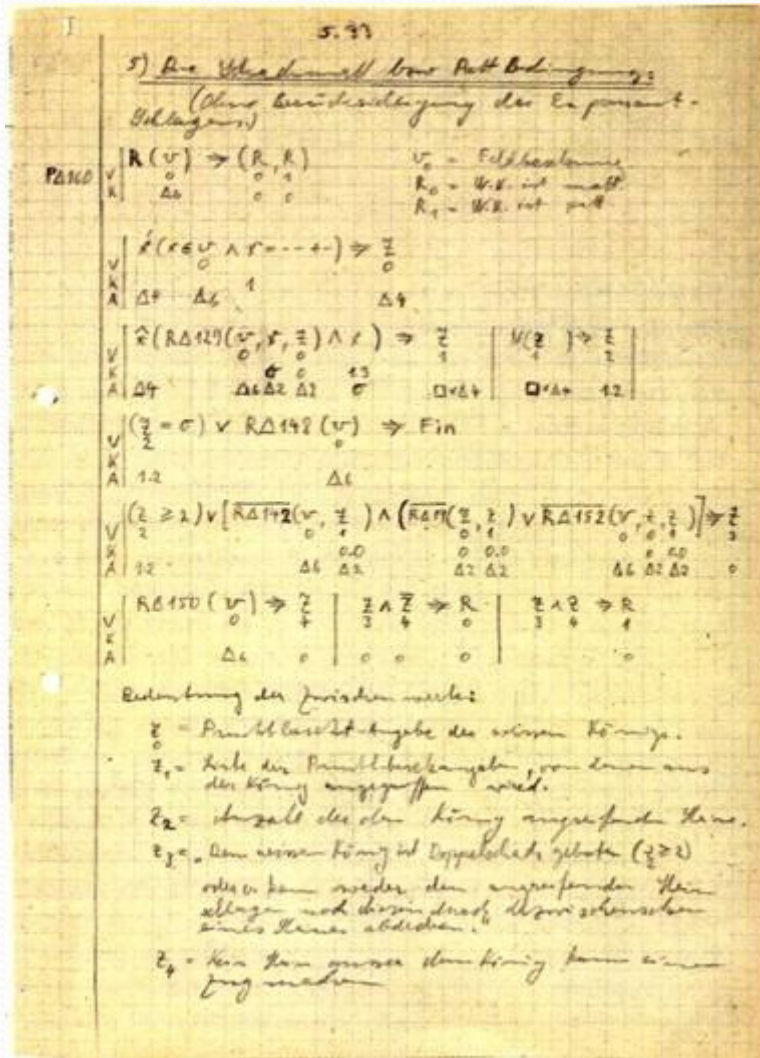 I
5.33
5) Die Schachmatt bzw Patt Bedingung.
(Ohne Berücksichtigung des En passant-
Schlagens.)
PΔ160 R(v) ⇒ (R, R) v₀ = Feldbesetzung
V 0 0 1 R₀ = W.K. ist matt.
K Δ6 0 0 R₁ = W.K. ist patt
x́(x∈v ∧ x=---+-) ⇒ Z
V 0 0
K 1
A Δ4 Δ6 Δ4
x̂(RΔ129(v, x, Z) ∧ x) ⇒ Z | N(Z) ⇒ Z
V 0 0 1 1 2
K σ 0 1.3
A Δ4 Δ6 Δ2 Δ2 σ □×Δ4 □×Δ4 1.2
(Z = σ) ∨ RΔ148(v) ⇒ Fin
V 2 0
K
A 1.2 Δ6
(Z ≥ 2) ∨ [RΔ142(v, Z) ∧ ((Z, Z) ∨ RΔ152(v, Z, Z))] ⇒ Z
V 2 0 1 0 1 0 0 1 3
K 0.0 0.0 0 0.0
A 1.2 Δ6 Δ2 Δ2 Δ2 Δ6 Δ2 Δ2 0
RΔ150(v) ⇒ Z | Z ∧ Z ⇒ R | Z ∧ Z ⇒ R
V 0 4 3 4 0 3 4 1
K
A Δ6 0 0 0 0 0
Bedeutung der Zwischenwerte:
Z₀ = Punktbesetzt-Angabe des weissen Königs.
Z₁ = Liste der Punktbesetztangaben, von denen aus
der König angegriffen wird.
Z₂ = Anzahl der den König angreifenden Steine.
Z₃ = „Dem weissen König ist Doppelschach geboten (Z₂≥2)
oder er kann weder den angreifenden Stein
schlagen noch diesen durch Dazwischenziehen
eines Steines abdecken."
Z₄ = Kein Stein ausser dem König kann einen
Zug machen